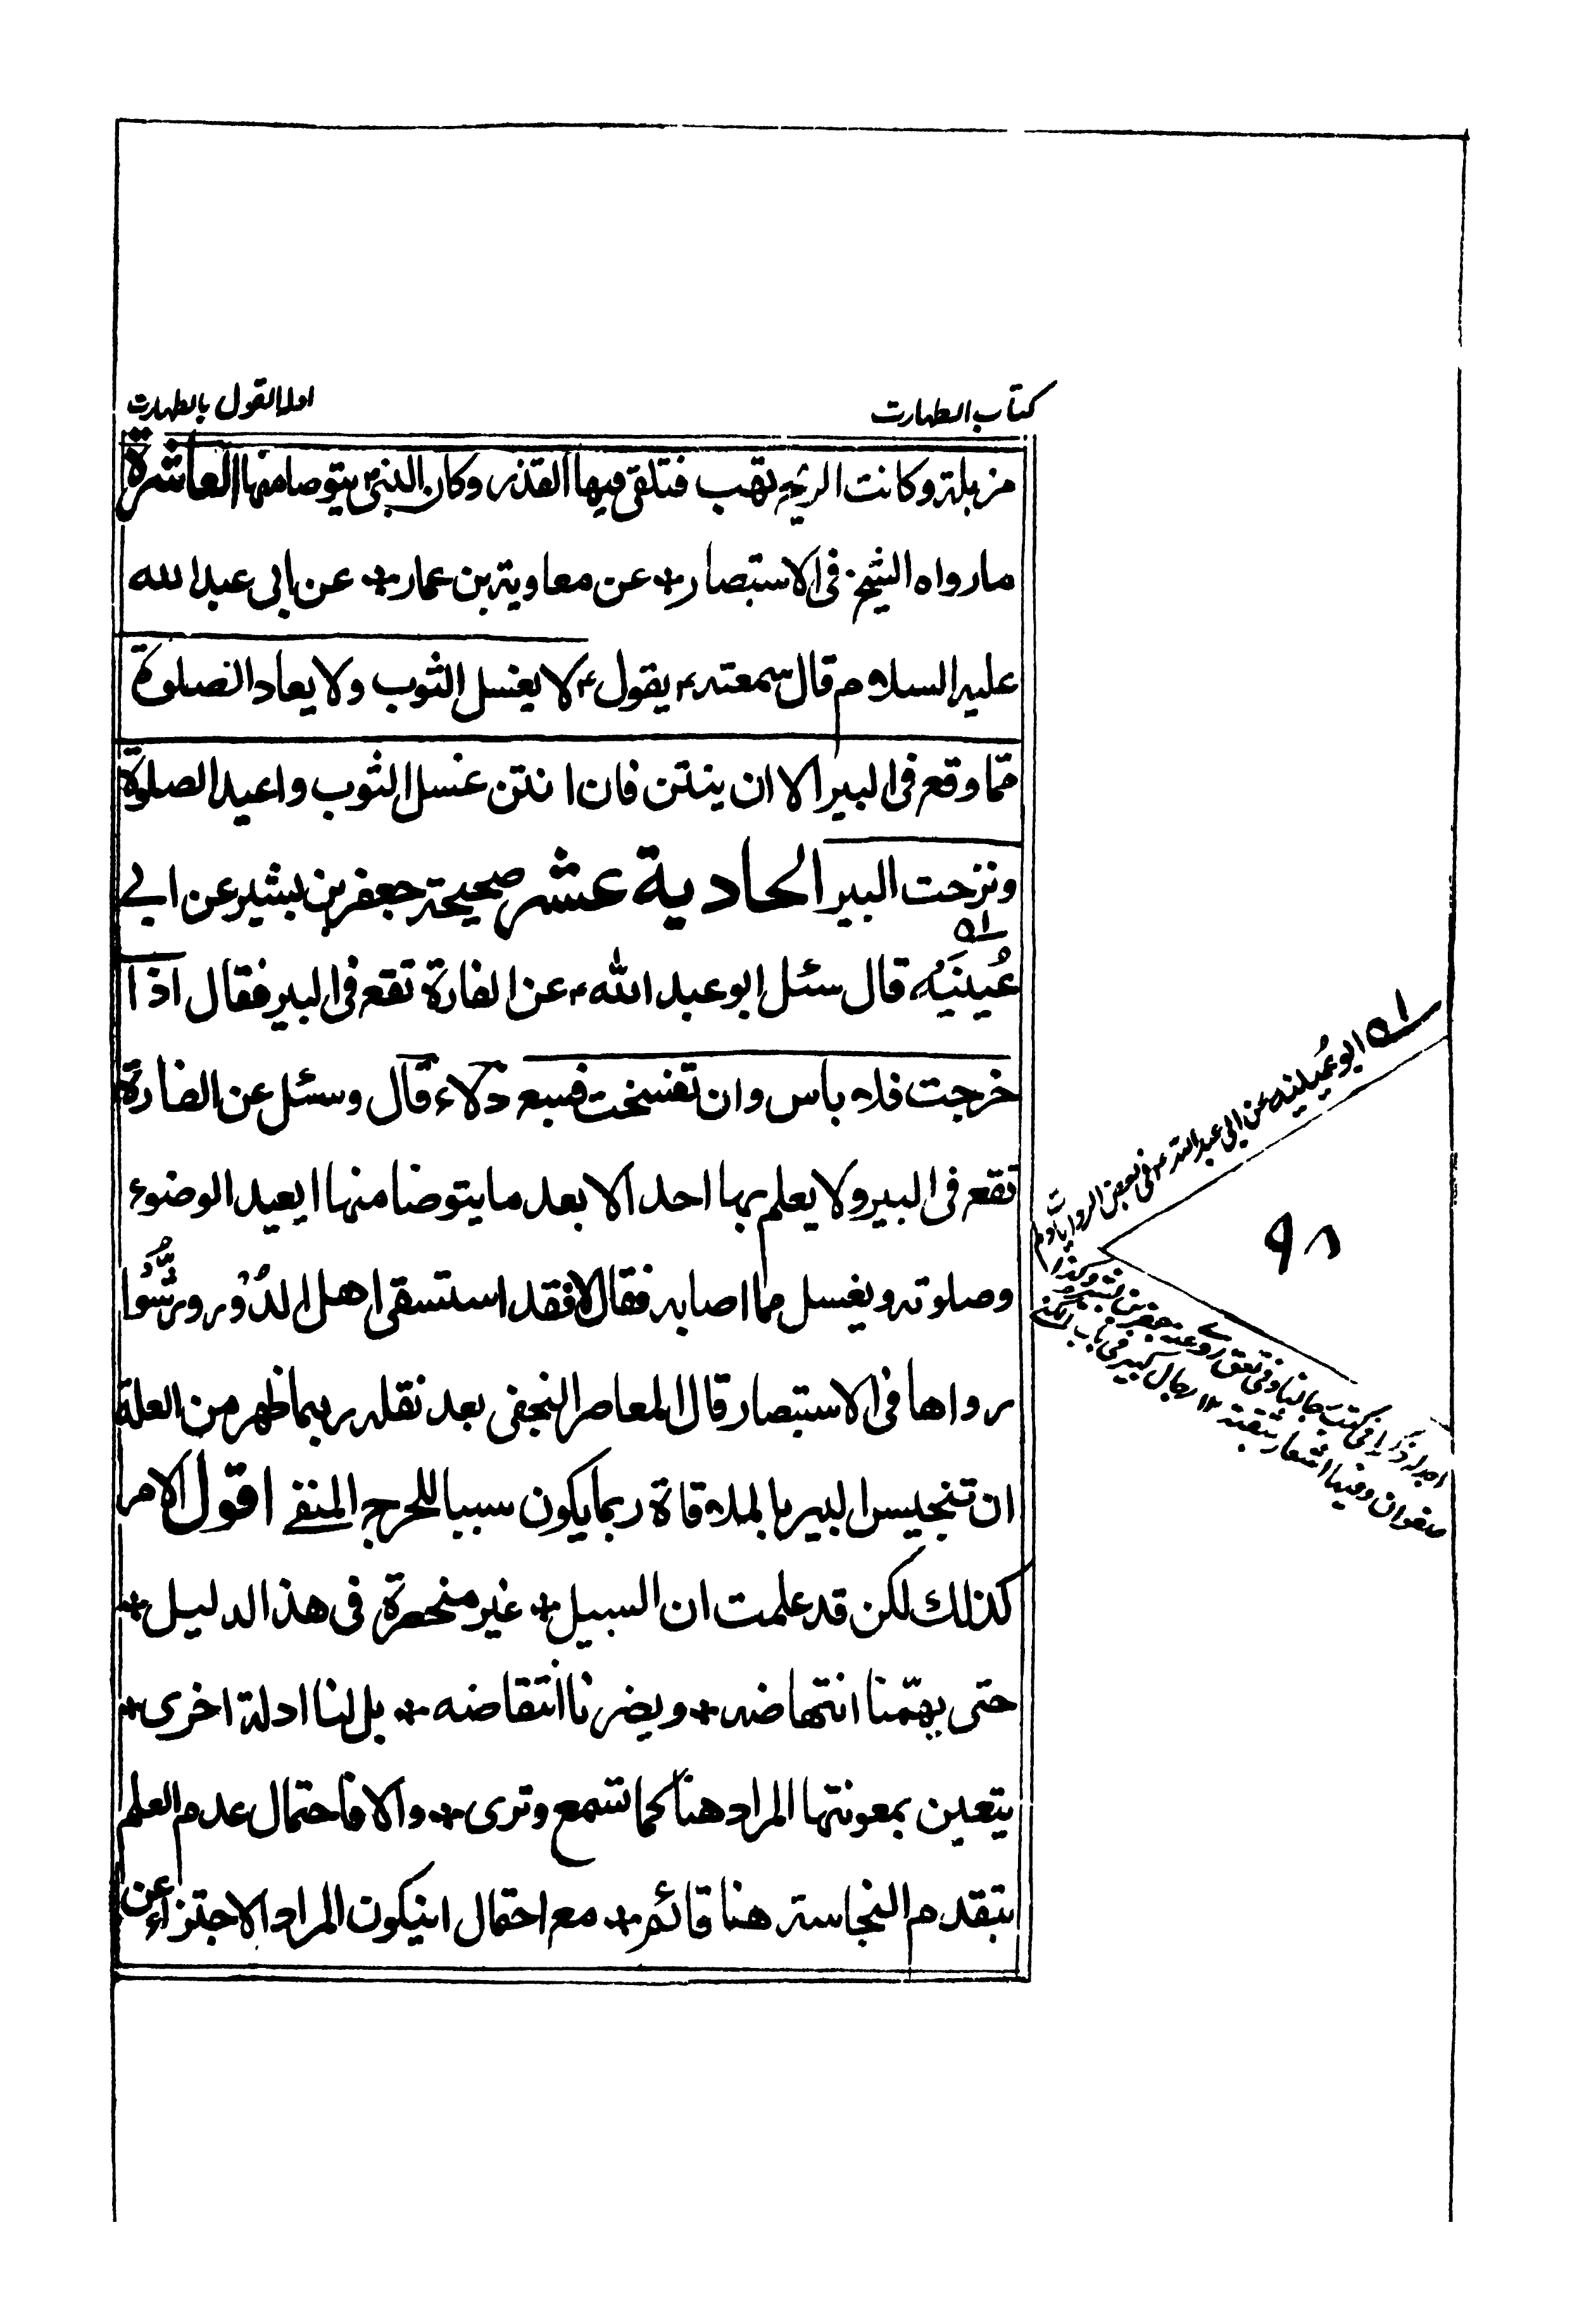 كتاب الطهارت
ادلة القول بالطهارت
مزبلة وكانت الريح تهب فتلقى فيها القذر وكان النبى ص يتوضا منها العاشرة
ما رواه الشيخ فى الاستبصار عن معاوية بن عمار عن ابى عبد الله
عليه السلام قال سمعته يقول لا يغسل الثوب ولا يعاد الصلوة
مما وقع فى البير الا ان ينتن فان انتن غسل الثوب واعيد الصلوة
ونزحت البير الحادية عشر صحيحة جعفر بن بشير عن ابي
عُيينَه قال سئل ابو عبد الله ع عن الفارة تقع فى البير فقال اذا
خرجت فلا باس وان تفسخت فسبع دلاء قال وسئل عن الفارة
تقع فى البير ولا يعلم بها احد الا بعد ما يتوضا منها ايعيد الوضوء
وصلوته ويغسل مما اصابه فقال لا فقد استسقى اهل الدُوْر ورَشُّوا
رواها فى الاستبصار قال المعاصر النجفى بعد نقله ربما ظهر من العلة
ان تنجيس البير بالملاقاة ربما يكون سببا للحرج المنفي اقول الامر
كذلك لكن قد علمت ان السبيل غير منحصرة فى هذا الدليل
حتى يهمّنا انتهاضه ويضرنا انتقاضه بل لنا ادلة اخرى
يتعين بمعونتها المراد هنا كما تسمع وترى والا فاحتمال عدم العلم
بتقدم النجاسة هنا قائم مع احتمال انيكون المراد الاجتزاء عن
ابو عُيينه عن ابي عبد الله ع فى بعض الروايات
٩٨